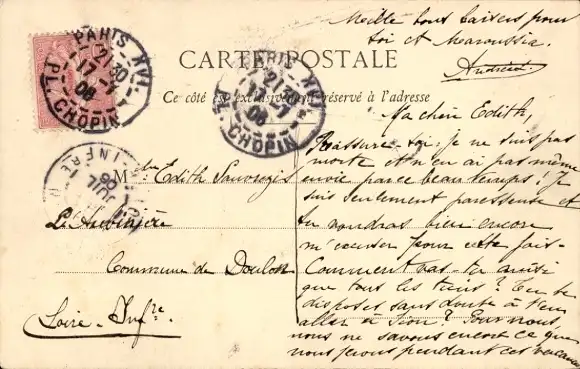 Mille bons baisers pour
toi et Maroussia.
Andrée.
CARTE POSTALE
Ce côté est exclusivement réservé à l'adresse
PARIS XVI.
21 30
17-7
06
PL. CHOPIN
PARIS XVI.
21 30
17-7
06
PL. CHOPIN
JUIL
06
INFRE
Mlle Edith
L'Aubinière
Commune de Doulon
Loire-Infre
Ma chère Edith,
Rassure-toi, je ne suis pas
morte et n'en ai pas même
envie par ce beau temps! Je
suis seulement paresseuse et
tu voudras bien encore
m'excuser pour cette fois-
Comment vas-tu ainsi
que tous les tiens? Tu te
disposes sans doute à t'en
aller à Pour nous,
nous ne savons encore ce que
nous ferons pendant ces vacances